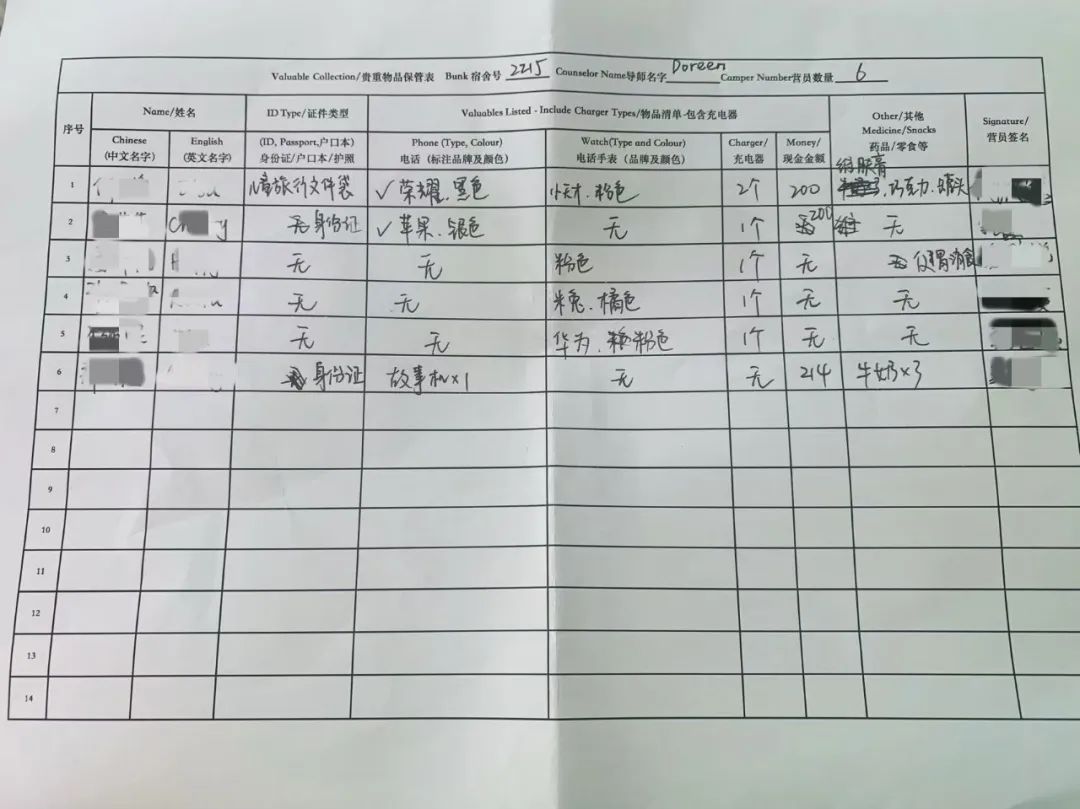 Valuable Collection/贵重物品保管表 Bunk 宿舍号 2215 Counselor Name导师名字 Doreen Camper Number营员数量 6
序号 Name/姓名 ID Type/证件类型 Valuables Listed - Include Charger Types/物品清单-包含充电器 Other/其他 Medicine/Snacks 药品/零食等 Signature/营员签名
Chinese (中文名字) English (英文名字) (ID, Passport,户口本) 身份证/户口本/护照 Phone (Type, Colour) 电话(标注品牌及颜色) Watch(Type and Colour) 电话手表(品牌及颜色) Charger/充电器 Money/现金金额
1 儿童旅行文件袋 ✓荣耀.黑色 小天才.粉色 2个 200 巧克力.罐头
2 无 身份证 ✓苹果.银色 无 1个 200 无
3 无 无 粉色 1个 无 健胃消食
4 无 无 米兔.橘色 1个 无 无
5 无 无 华为.粉色 1个 无 无
6 身份证 故事机×1 无 无 214 牛奶×3
7
8
9
10
11
12
13
14